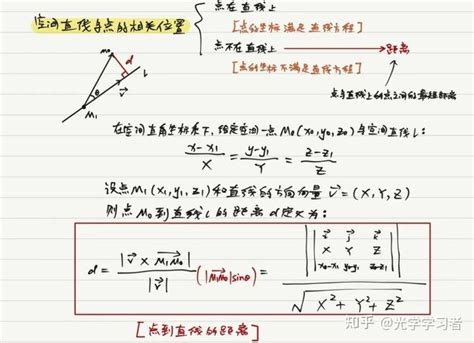 空间直线与点的相关位置
点在直线上
[点的坐标满足直线方程]
点不在直线上 → 距离
[点的坐标不满足直线方程]
点与直线上的点之间的最短距离
M₀ d l θ v⃗ M₁
在空间直角坐标系下,给定空间一点M₀(x₀,y₀,z₀)与空间直线l:
(x-x₁)/X = (y-y₁)/Y = (z-z₁)/Z
设点M₁(x₁,y₁,z₁)和直线的方向向量 v⃗=(X,Y,Z)
则点M₀到直线l的距离d定义为:
d = |v⃗ × M₁M₀⃗| / |v⃗| (|M₁M₀⃗|sinθ) = || i⃗ j⃗ k⃗ ; X Y Z ; x₀-x₁ y₀-y₁ z₀-z₁ || / √(X²+Y²+Z²)
[点到直线的距离]
知乎 @光学学习者